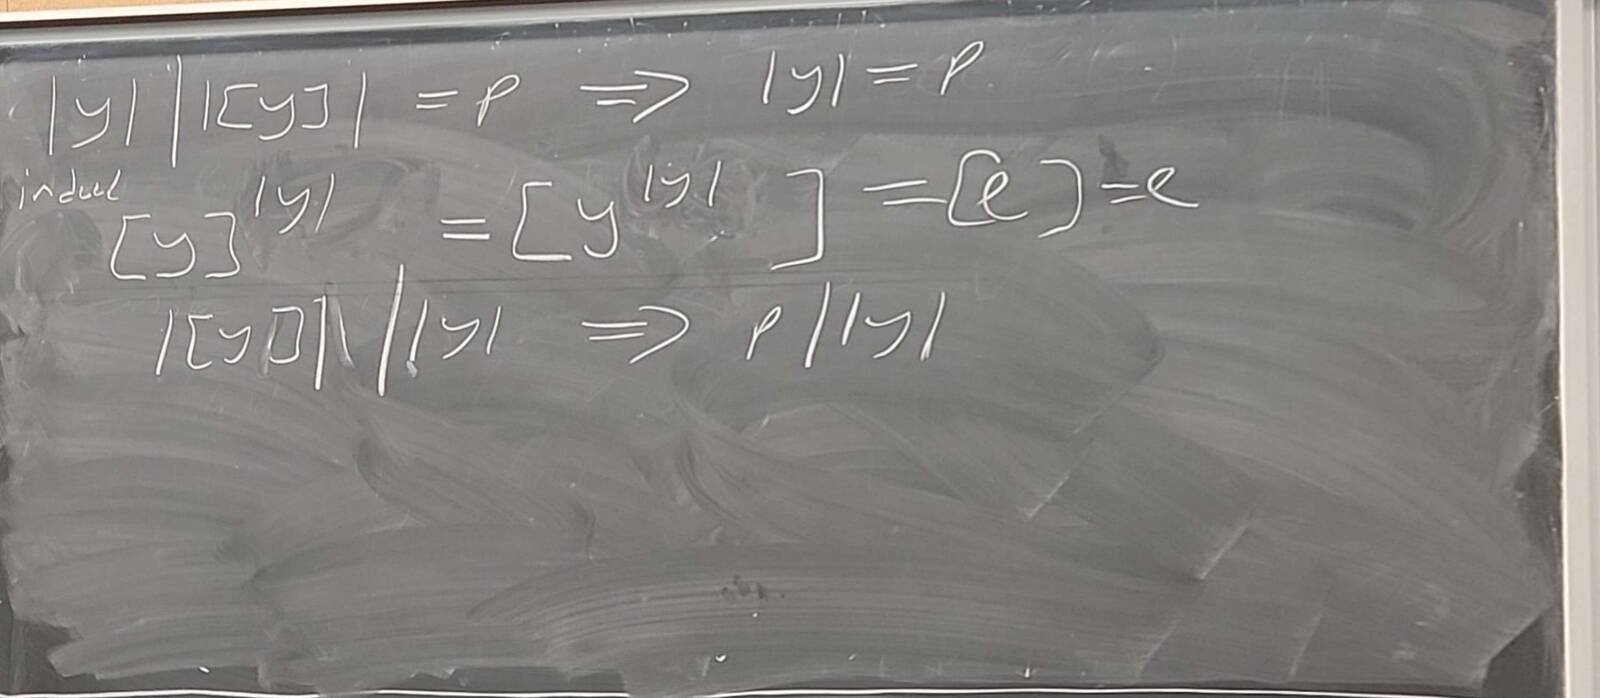 |y| | |[y]| = p ⇒ |y| = p
indeed [y]^{|y|} = [y^{|y|}] = [e] = e
|[y]| | |y| ⇒ p | |y|